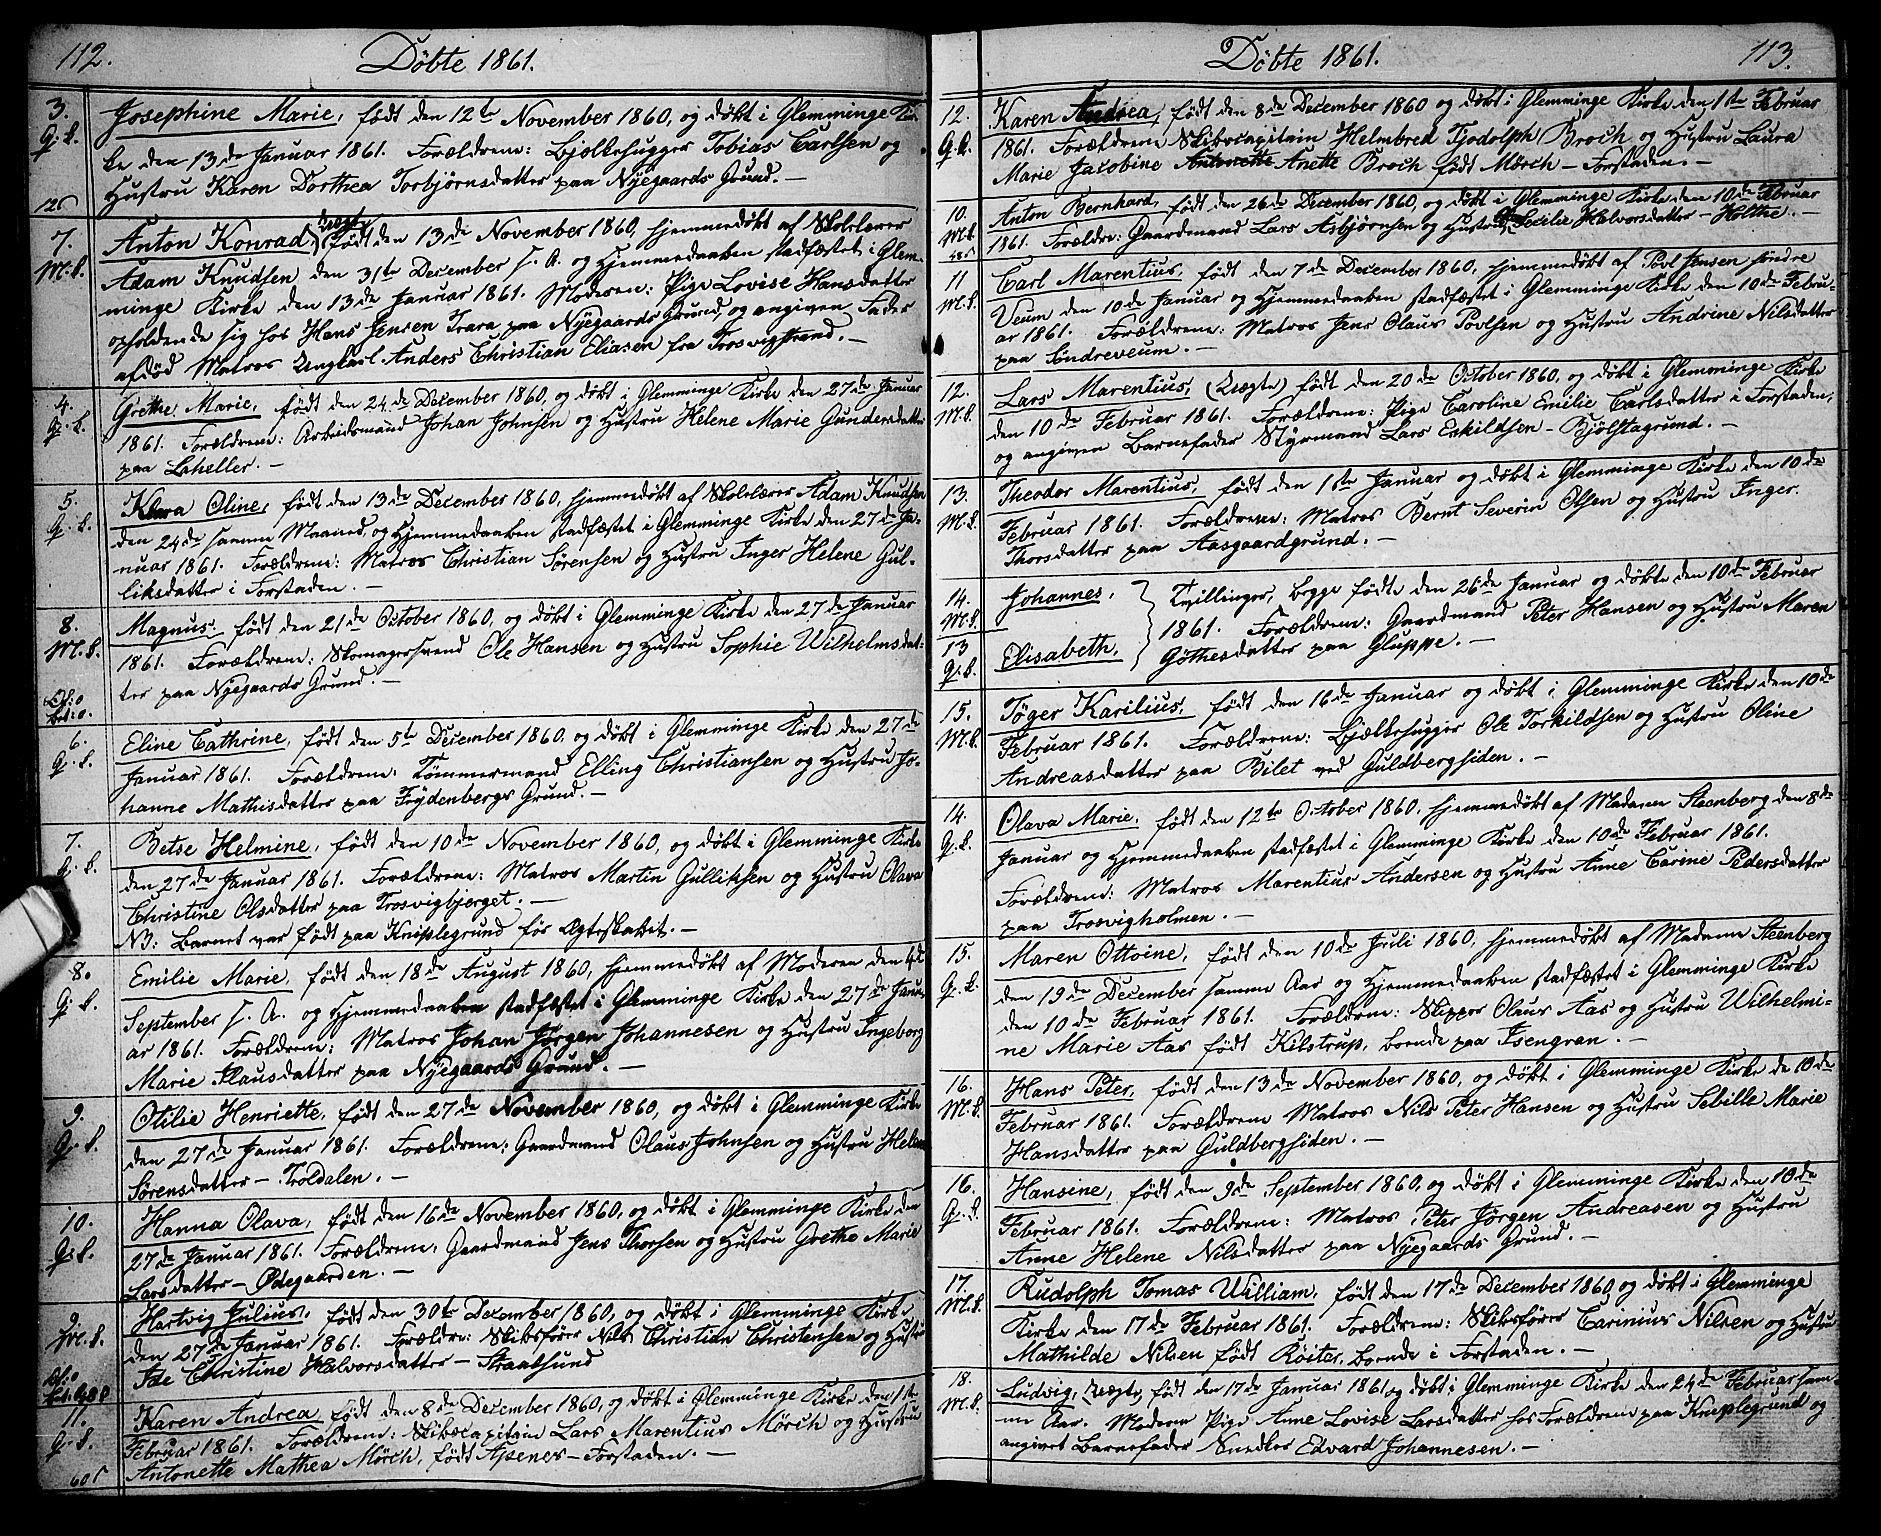 112.
Döbte 1861.
3. Josephine Marie, født den 12te November 1860, og døbt i Glemminge Kir-
Q.K. ke den 13de Januar 1861. Forældrene: Bjelkehugger Tobias Carlsen og
Hustru Karen Dorthea Torbjørnsdatter paa Nyegaards Grund. —
7. Anton Konrad, (Uægte) født den 13de November 1860, hjemmedøbt af Skolelærer
M.K. Adam Knudsen den 31te December s. A. og Hjemmedaaben stadfæstet i Glem-
minge Kirke den 13de Januar 1861. Moderen: Pige Lovise Hansdatter
opholdende sig hos Hans Jensen Trara paa Nyegaards Grund, og angiven Fader
afdød Matros Ungkarl Anders Christian Eliasen fra Trosvigstrand. —
4. Grethe Marie, født den 24de December 1860, og døbt i Glemminge Kirke den 27de Januar
Q.K. 1861. Forældrene: Arbeidsmand Johan Johnsen og Hustru Helene Marie Gundersdatter
paa Laheller. —
5. Klara Oline, født den 13de December 1860, hjemmedøbt af Skolelærer Adam Knudsen
Q.K. den 24de samme Maaned, og Hjemmedaaben stadfæstet i Glemminge Kirke den 27de Ja-
nuar 1861. Forældrene: Matros Christian Sørensen og Hustru Inger Helene Gul-
liksdatter i Forstaden. —
8. Magnus, født den 21de October 1860, og døbt i Glemminge Kirke den 27de Januar
M.K. 1861. Forældrene: Skomagersvend Ole Hansen og Hustru Sophie Wilhelmsdat-
ter paa Nyegaards Grund. —
6. Eline Cathrine, født den 5te December 1860, og døbt i Glemminge Kirke den 27de
Q.K. Januar 1861. Forældrene: Tømmermand Elling Christiansen og Hustru Jo-
hanne Mathisdatter paa Frydenbergs Grund. —
7. Betse Helmine, født den 10de November 1860, og døbt i Glemminge Kirke
Q.K. den 27de Januar 1861. Forældrene: Matros Martin Gulliksen og Hustru Olava
Christine Olsdatter paa Trosvigbjerget. —
NB: Barnet var født paa Kniplegrund før Ægteskabet. —
8. Emilie Marie, født den 18de August 1860, hjemmedøbt af Moderen den 4de
Q.K. September s. A. og Hjemmedaaben stadfæstet i Glemminge Kirke den 27de Janu-
ar 1861. Forældrene: Matros Johan Jørgen Johannesen og Hustru Ingeborg
Marie Klausdatter paa Nyegaards Grund. —
9. Otilie Henriette, født den 27de November 1860, og døbt i Glemminge Kirke
Q.K. den 27de Januar 1861. Forældrene: Gaardmand Olaus Johnsen og Hustru Helene
Sørensdatter — Troldalen. —
10. Hanna Olava, født den 16de November 1860, og døbt i Glemminge Kirke den
Q.K. 27de Januar 1861. Forældrene: Gaardmand Jens Thorsen og Hustru Grethe Marie
Larsdatter — Ødegaarden. —
9. Hartvig Julius, født den 30te December 1860, og døbt i Glemminge Kirke
M.K. den 27de Januar 1861. Forældre: Skibsfører Nils Christian Christensen og Hustru
Ide Christine Halvorsdatter — Straalsund
11. Karen Andrea, født den 8de December 1860, og døbt i Glemminge Kirke den 1ste
Q.K. Februar 1861. Forældrene: Skibscapitain Lars Marentius Mörch og Hustru
Antonette Mathea Mörch, født Apenes — Forstaden. —
Döbte 1861.
113.
12. Karen Andrea, født den 8de December 1860 og døbt i Glemminge Kirke den 1ste Februar
Q.K. 1861. Forældrene Skibscapitain Helmbred Tjodolph Broch og Hustru Laura
Marie Jacobine Antonette Anette Broch født Mörch — Forstaden. —
10. Anton Bernhard, født den 26de December 1860, og døbt i Glemminge Kirke den 10de Februar
M.K. 1861. Forældre: Gaardmand Lars Asbjørnsen og Hustru Cecilie Halvorsdatter — Holthe. —
11 Carl Marentius, født den 7de December 1860, hjemmedøbt af Povl Jensen søndre
M.K. Veum den 10de Januar og Hjemmedaaben stadfæstet i Glemminge Kirke den 10de Febru-
ar 1861. Forældrene: Matros Jens Olaus Povlsen og Hustru Andrine Nilsdatter
paa Søndreveum. —
12. Lars Marentius, (Uægte) født den 20de October 1860, og døbt i Glemminge Kirke
M.K. den 10de Februar 1861. Forældrene: Pige Caroline Emilie Carlsdatter i Forstaden,
og angiven Barnefader Styrmand Lars Eskildsen — Kjølstagrund. —
13. Theodor Marentius, født den 1ste Januar og døbt i Glemminge Kirke den 10de
M.K. Februar 1861. Forældrene: Matros Bernt Severin Olsen og Hustru Inger
Thorsdatter paa Aasgaardgrund. —
14. Johannes, Tvillinger, begge fødte den 26de Januar og døbte den 10de Februar
M.K. 1861. Forældrene: Gaardmand Peter Hansen og Hustru Maren
13 Q.K. Elisabeth, Göthesdatter paa Gluppe. —
15. Töger Karilius, født den 16de Januar og døbt i Glemminge Kirke den 10de
M.K. Februar 1861. Forældrene: Bjelkehugger Ole Torkildsen og Hustru Oline
Andreasdatter paa Bilet ved Guldbergsiden. —
14. Olava Marie, født den 12te October 1860, hjemmedøbt af Madame Steenberg den 8de
Q.K. Januar og Hjemmedaaben stadfæstet i Glemminge Kirke den 10de Februar 1861.
Forældrene: Matros Marentius Andersen og Hustru Anne Carine Pedersdatter
paa Trosvigholmen. —
15. Maren Ottoine, født den 10de Juli 1860, hjemmedøbt af Madame Steenberg
Q.K. den 19de December samme Aar og Hjemmedaaben stadfæstet i Glemminge Kirke
den 10de Februar 1861. Forældrene: Skipper Olaus Aas og Hustru Wilhelmi-
ne Marie Aas født Kilstrup, boende paa Isengran. —
16. Hans Peter, født den 13de November 1860, og døbt i Glemminge Kirke de 10de
M.K. Februar 1861. Forældrene Matros Nils Peter Hansen og Hustru Sebille Marie
Hansdatter paa Guldbergsiden. —
16. Hansine, født den 9de September 1860, og døbt i Glemminge Kirke den 10de
Q.K. Februar 1861. Forældrene: Matros Peter Jörgen Andreasen og Hustru
Anne Helene Nilsdatter paa Nyegaards Grund. —
17. Rudolph Tomas William, født den 17de December 1860 og døbt i Glemminge
M.K. Kirke den 17de Februar 1861. Forældrene: Skibsfører Carinius Nilsen og Hustru
Mathilde Nilsen født Röiter, boende i Forstaden. —
18. Ludvig, Uægte, født den 17de Januar 1861 og døbt i Glemminge Kirke den 24de Februar sam-
M.K. me Aar. Moderen Pige Anne Lovise Larsdatter hos Forældrene paa Kniplegrund og
angivet Barnefader Snedker Edvard Johannesen. —